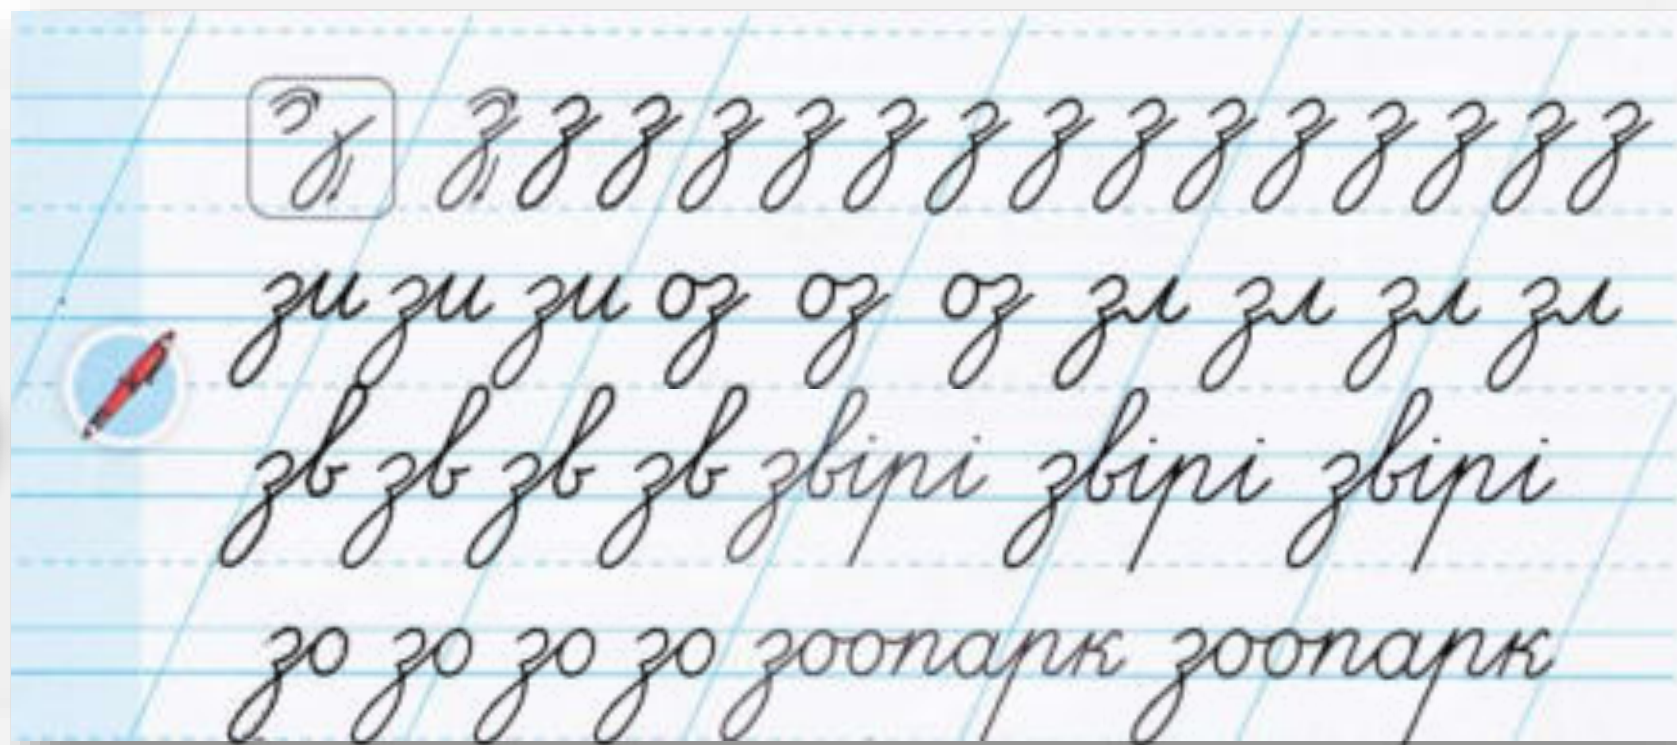 з з з з з з з з з з з з з з з
зи зи зи оз оз оз зл зл зл зл
зв зв зв зв звірі звірі звірі
зо зо зо зо зоопарк зоопарк